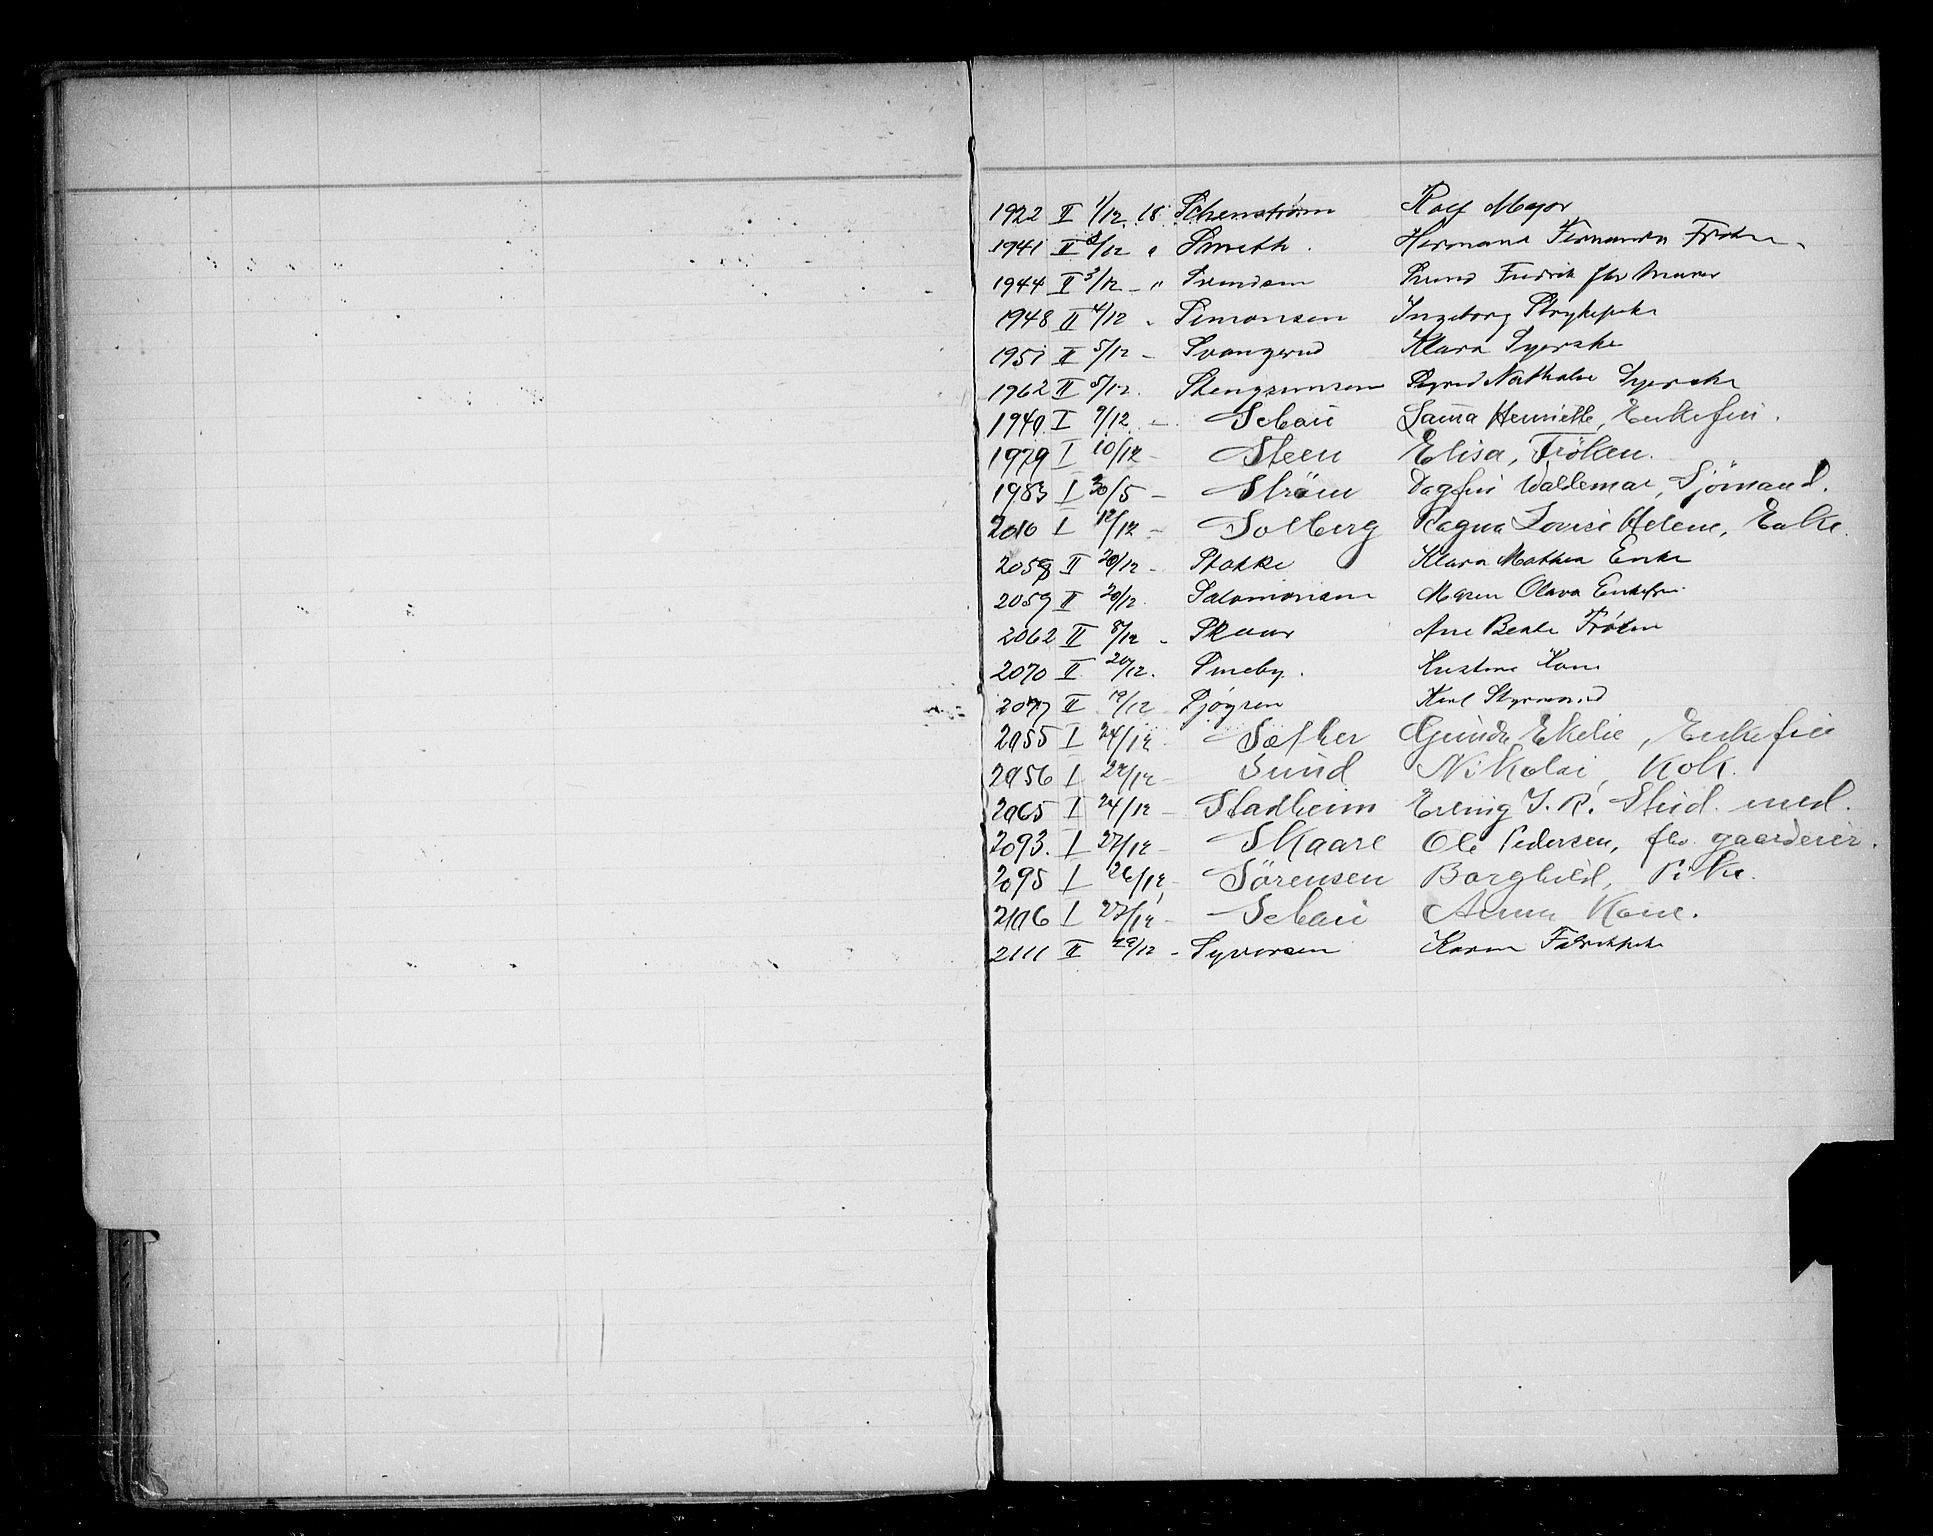 1922 II 1/12 18 Schenström Rolf Major
1941 II 2/12 " Smeth. Hermana Fernanda Frøken
1944 II 3/12 - " Svendsen Fredrik fhv Murer
1948 II 4/12 " Simonsen Ingeborg Strykepike
1951 II 5/12 - Svangerud Klara Syerske
1962 II 5/12. Nathalie Syerske
1940 I 9/12 - Schou Henriette, Enkefru.
1979 I 10/12 - Steen Elisa, Fröken.
1983 I 30/5 - Ström Dagfin Waldemar, Sjömand.
2010 I 12/12 - Solberg Ragna Lovise Helene, Enke.
2058 II 20/12 - Stokke Klara Mathea Enke
2059 II 20/12. Salomonsen Maren Olava Enkefru
2062 II 8/12 - Skaar Ane Beate Frøken
2070 II 20/12. Smeby. Kristine Kone
2077 II 19/12 Sjøgren Karl Styrmand
2055 I 24/12 - Sæther Gunda Enkefru
2056 I 24/12 - Sund Nikolai, Kok.
2065 I 24/12 - Stadheim Erling J. R. Stud. med.
2093. I 27/12 - Skaare Ole Pedersen, fhv. gaardeier.
2095 I 26/12 - Sörensen Borghild, Pike.
2106 I 27/12 - Schou Anna Kone.
2111 II 29/12 - Syversen Karen Fabrikpike